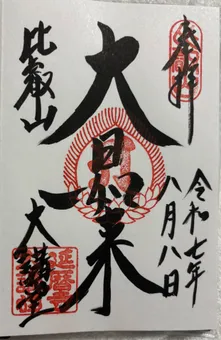 奉拝
令和七年
八月八日
大日如来
比叡山
大講堂
延暦寺